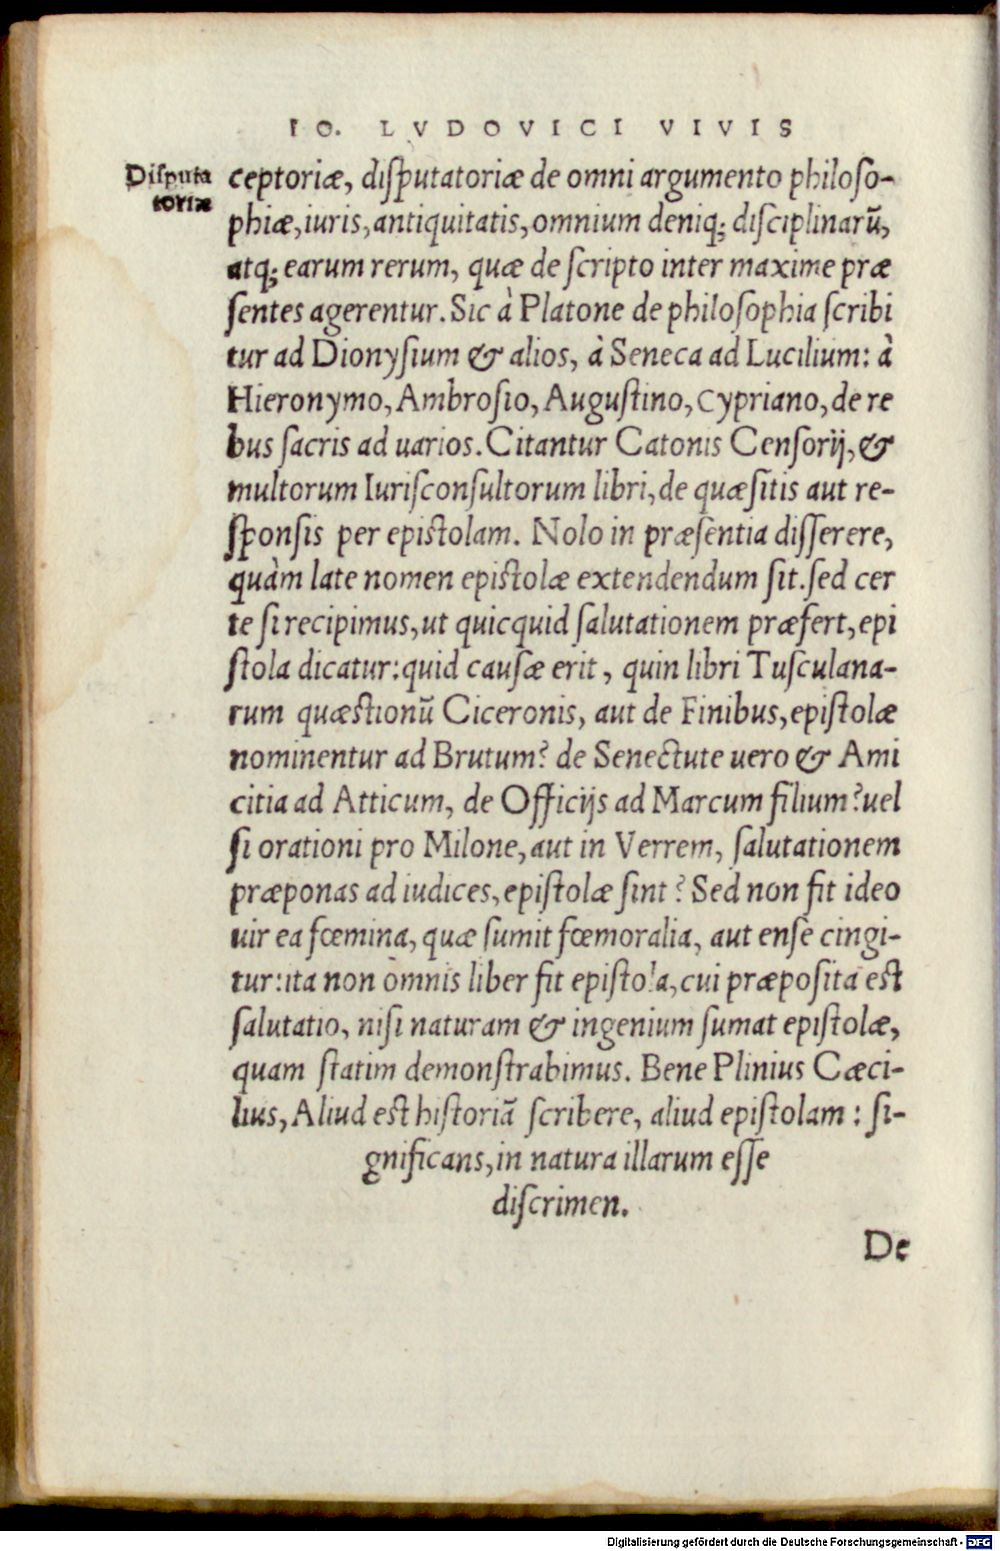 IO. LVDOVICI VIVIS
Disputa
toriæ
ceptoriæ, diſputatoriæ de omni argumento philoſo-
phiæ, iuris, antiquitatis, omnium deniq; diſciplinarū,
atq; earum rerum, quæ de ſcripto inter maxime præ
ſentes agerentur. Sic à Platone de philoſophia ſcribi
tur ad Dionyſium & alios, à Seneca ad Lucilium: à
Hieronymo, Ambroſio, Auguſtino, Cypriano, de re
bus ſacris ad uarios. Citantur Catonis Cenſorij, &
multorum Iuriſconſultorum libri, de quæſitis aut re-
ſponſis per epiſtolam. Nolo in præſentia diſſerere,
quàm late nomen epiſtolæ extendendum ſit. ſed cer
te ſi recipimus, ut quicquid ſalutationem præfert, epi
ſtola dicatur: quid cauſæ erit, quin libri Tuſculana-
rum quæſtionū Ciceronis, aut de Finibus, epiſtolæ
nominentur ad Brutum? de Senectute uero & Ami
citia ad Atticum, de Officijs ad Marcum filium? uel
ſi orationi pro Milone, aut in Verrem, ſalutationem
præponas ad iudices, epiſtolæ ſint? Sed non fit ideo
uir ea fœmina, quæ ſumit fœmoralia, aut enſe cingi-
tur: ita non omnis liber fit epiſtola, cui præpoſita eſt
ſalutatio, niſi naturam & ingenium ſumat epiſtolæ,
quam ſtatim demonſtrabimus. Bene Plinius Cæci-
lius, Aliud eſt hiſtoriā ſcribere, aliud epiſtolam: ſi-
gnificans, in natura illarum eſſe
diſcrimen.
De
Digitalisierung gefördert durch die Deutsche Forschungsgemeinschaft - DFG